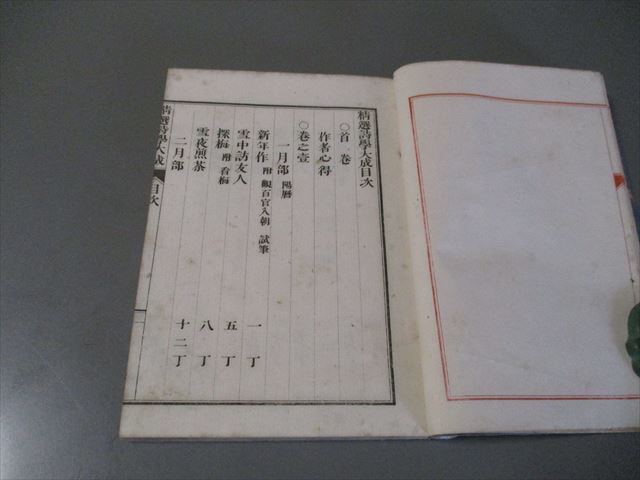 精選詩學大成目次
〇首卷
作者心得
〇卷之壹
一月部 陽曆
新年作 附 觀百官入朝 試筆 一丁
雪中訪友人 五丁
探梅 附 看梅 八丁
雪夜煎茶 十二丁
二月部
精選詩學大成 目次 一